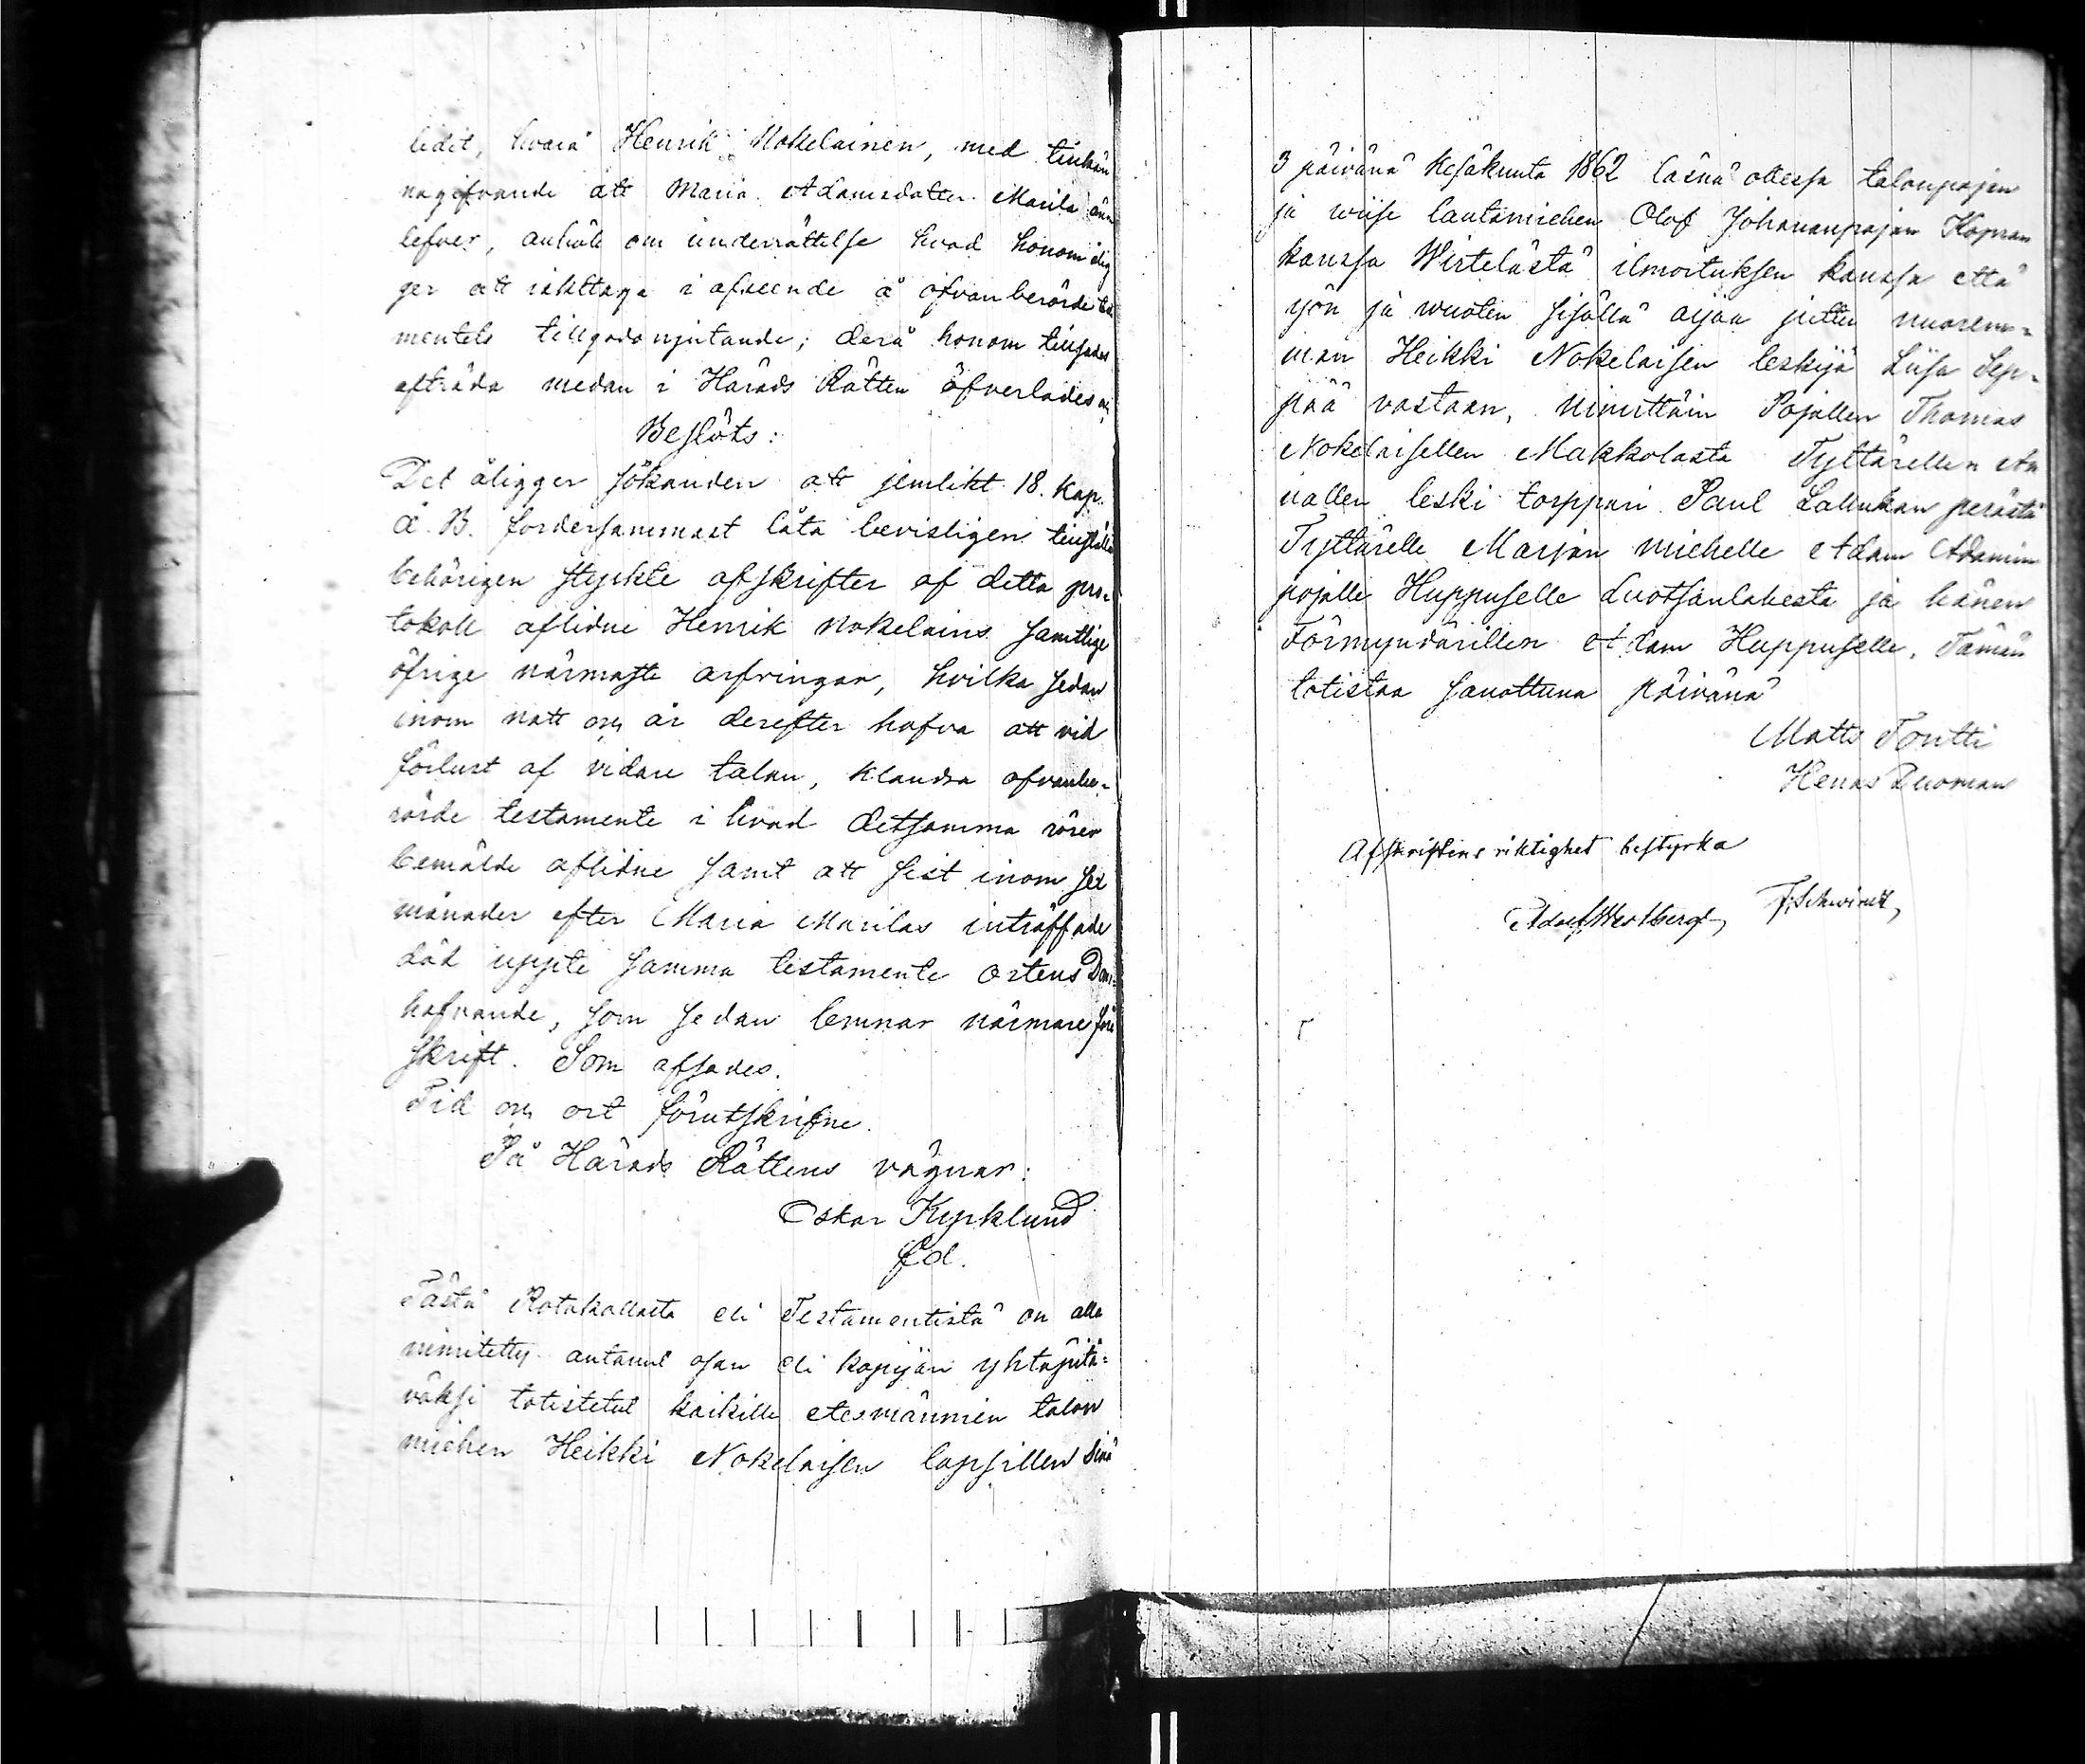 lidit, hvarå Henrik Nokelainen, med tillkän
nagifvande att Maria Adamsdotter Marila ännu
lefver, anhöll om underrättelse hvad honom ålig
ger att iakttaga i afseende å ofvanberörde tes
mentets tillgodonjutande; derå honom tillsades
afträda medan i Härads Rätten öfverlades och
Beslöts:
Det åligger sökanden att jemlikt 18. Kap.
Ä. B. fordersammast låta bevisligen tillställa
behörigen styrkte afskrifter af detta pro-
tokoll aflidne Henrik Nokelains samtlige
öfrige närmaste arfvingar, hvilka sedan
inom natt och år derefter hafva att vid
förlust af vidare talan, klandra ofvanbe-
rörde testamente i hvad detsamma rörer
bemälde aflidne samt att sist inom sex
månader efter Maria Marilas inträffade
död uppte samma testamente ortens Dom-
hafvande, som sedan lemnar närmare före
skrift. Som afsades.
Tid och ort förutskrifne.
På Härads Rättens vägnar:
Oskar Kyrklund
Ed.
Tästä Rotokollasta eli Testamentistä on alla
nimitetty antanut osan eli kopijan yhtäpitä-
väksi totistetut kaikille edesmännien talon
miehen Heikki Nokelaisen lapsillen Sinä
3 päivänä Kesäkuuta 1862 läsnä ollessa talonpojan
ja wiise lautamiehen Olof Johananpojan Kopran
kanssa Wirtelästä ilmoituksen kanssa että
yön ja wuoten sisällä aijaa juttu nuorem-
man Heikki Nokelaisen leskijä Liisa Sep-
pää vastaan, nimittäin Pojallen Thomas
Nokelaisellen Makkolasta Tyttärellen An
nallen leski torppari Paul Lallukan perästä
Tyttärelle Marjan miehelle Adam Adamin
pojalle Huppuselle Luotsanlahesta ja hänen
Förmyndärillen Adam Huppuselle. Tämän
totistaa sanottuna päivänä
Matts Tontti
Henas Tuoman
Afskriftens riktighet bestyrka
Adolf Westberg, F. Schwindt,